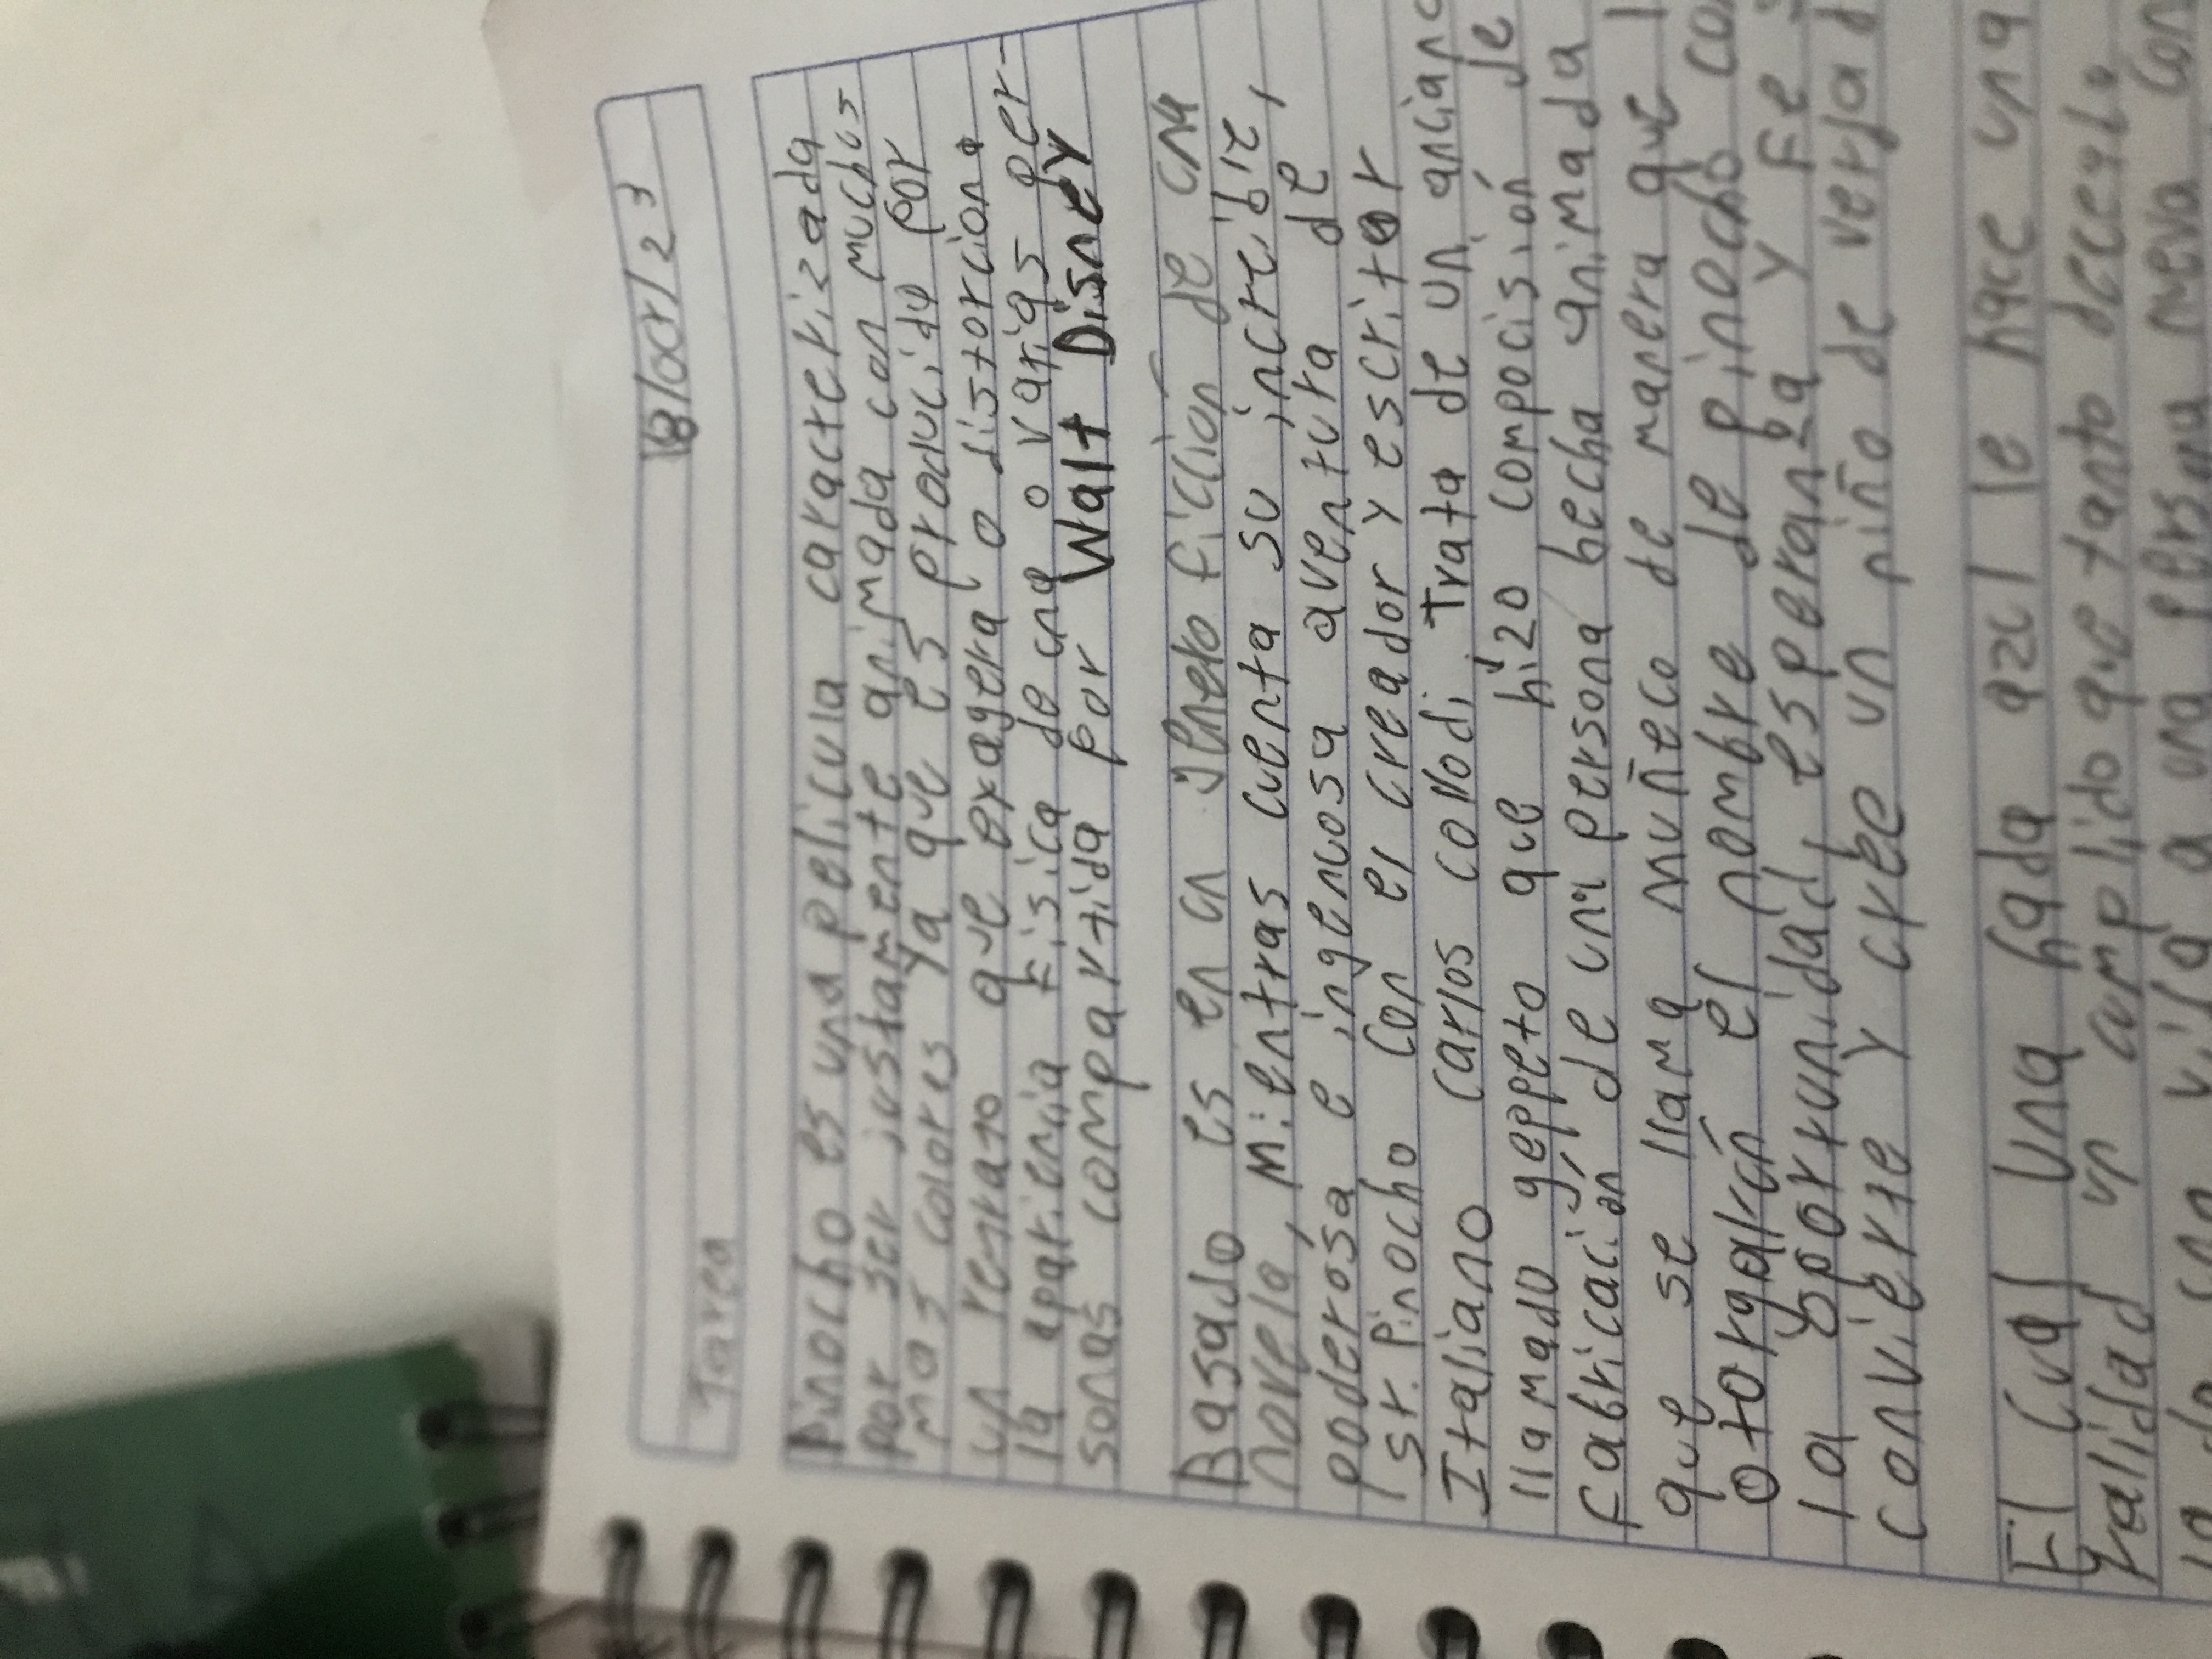 18/oct/23
Tarea
Pinocho es una pelicula caracterizada
por ser justamente animada con muchos
mas colores ya que es producido por
un retrato que exagera o distorciona
la apariencia Fisica de una o varias per-
sonas compartida por Walt Disney
Basado es en un genero ficción de una
novela, Mientras cuenta su increible,
poderosa e ingenuosa aventura de
sr. Pinocho con el creador y escritor
Italiano Carlos collodi, Trata de un anciano
llamado geppeto que hizo composición de
fabricación de una persona hecha animada
que se llama muñeco de manera que
otorgarán el nombre de pinocho
la oportunidad, esperanza y Fe
convierte y cree un niño de verdad
El cual Una hada azul le hace una
realidad un cumplido que tanto
vida a una persona nueva con